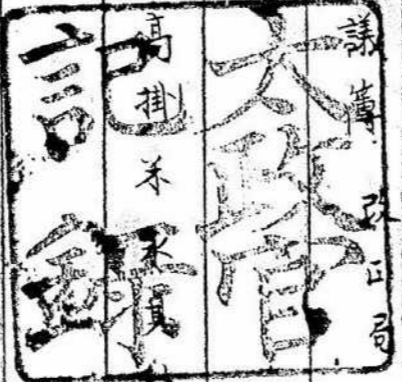 議簿改正局
太政官
高掛米永
記録